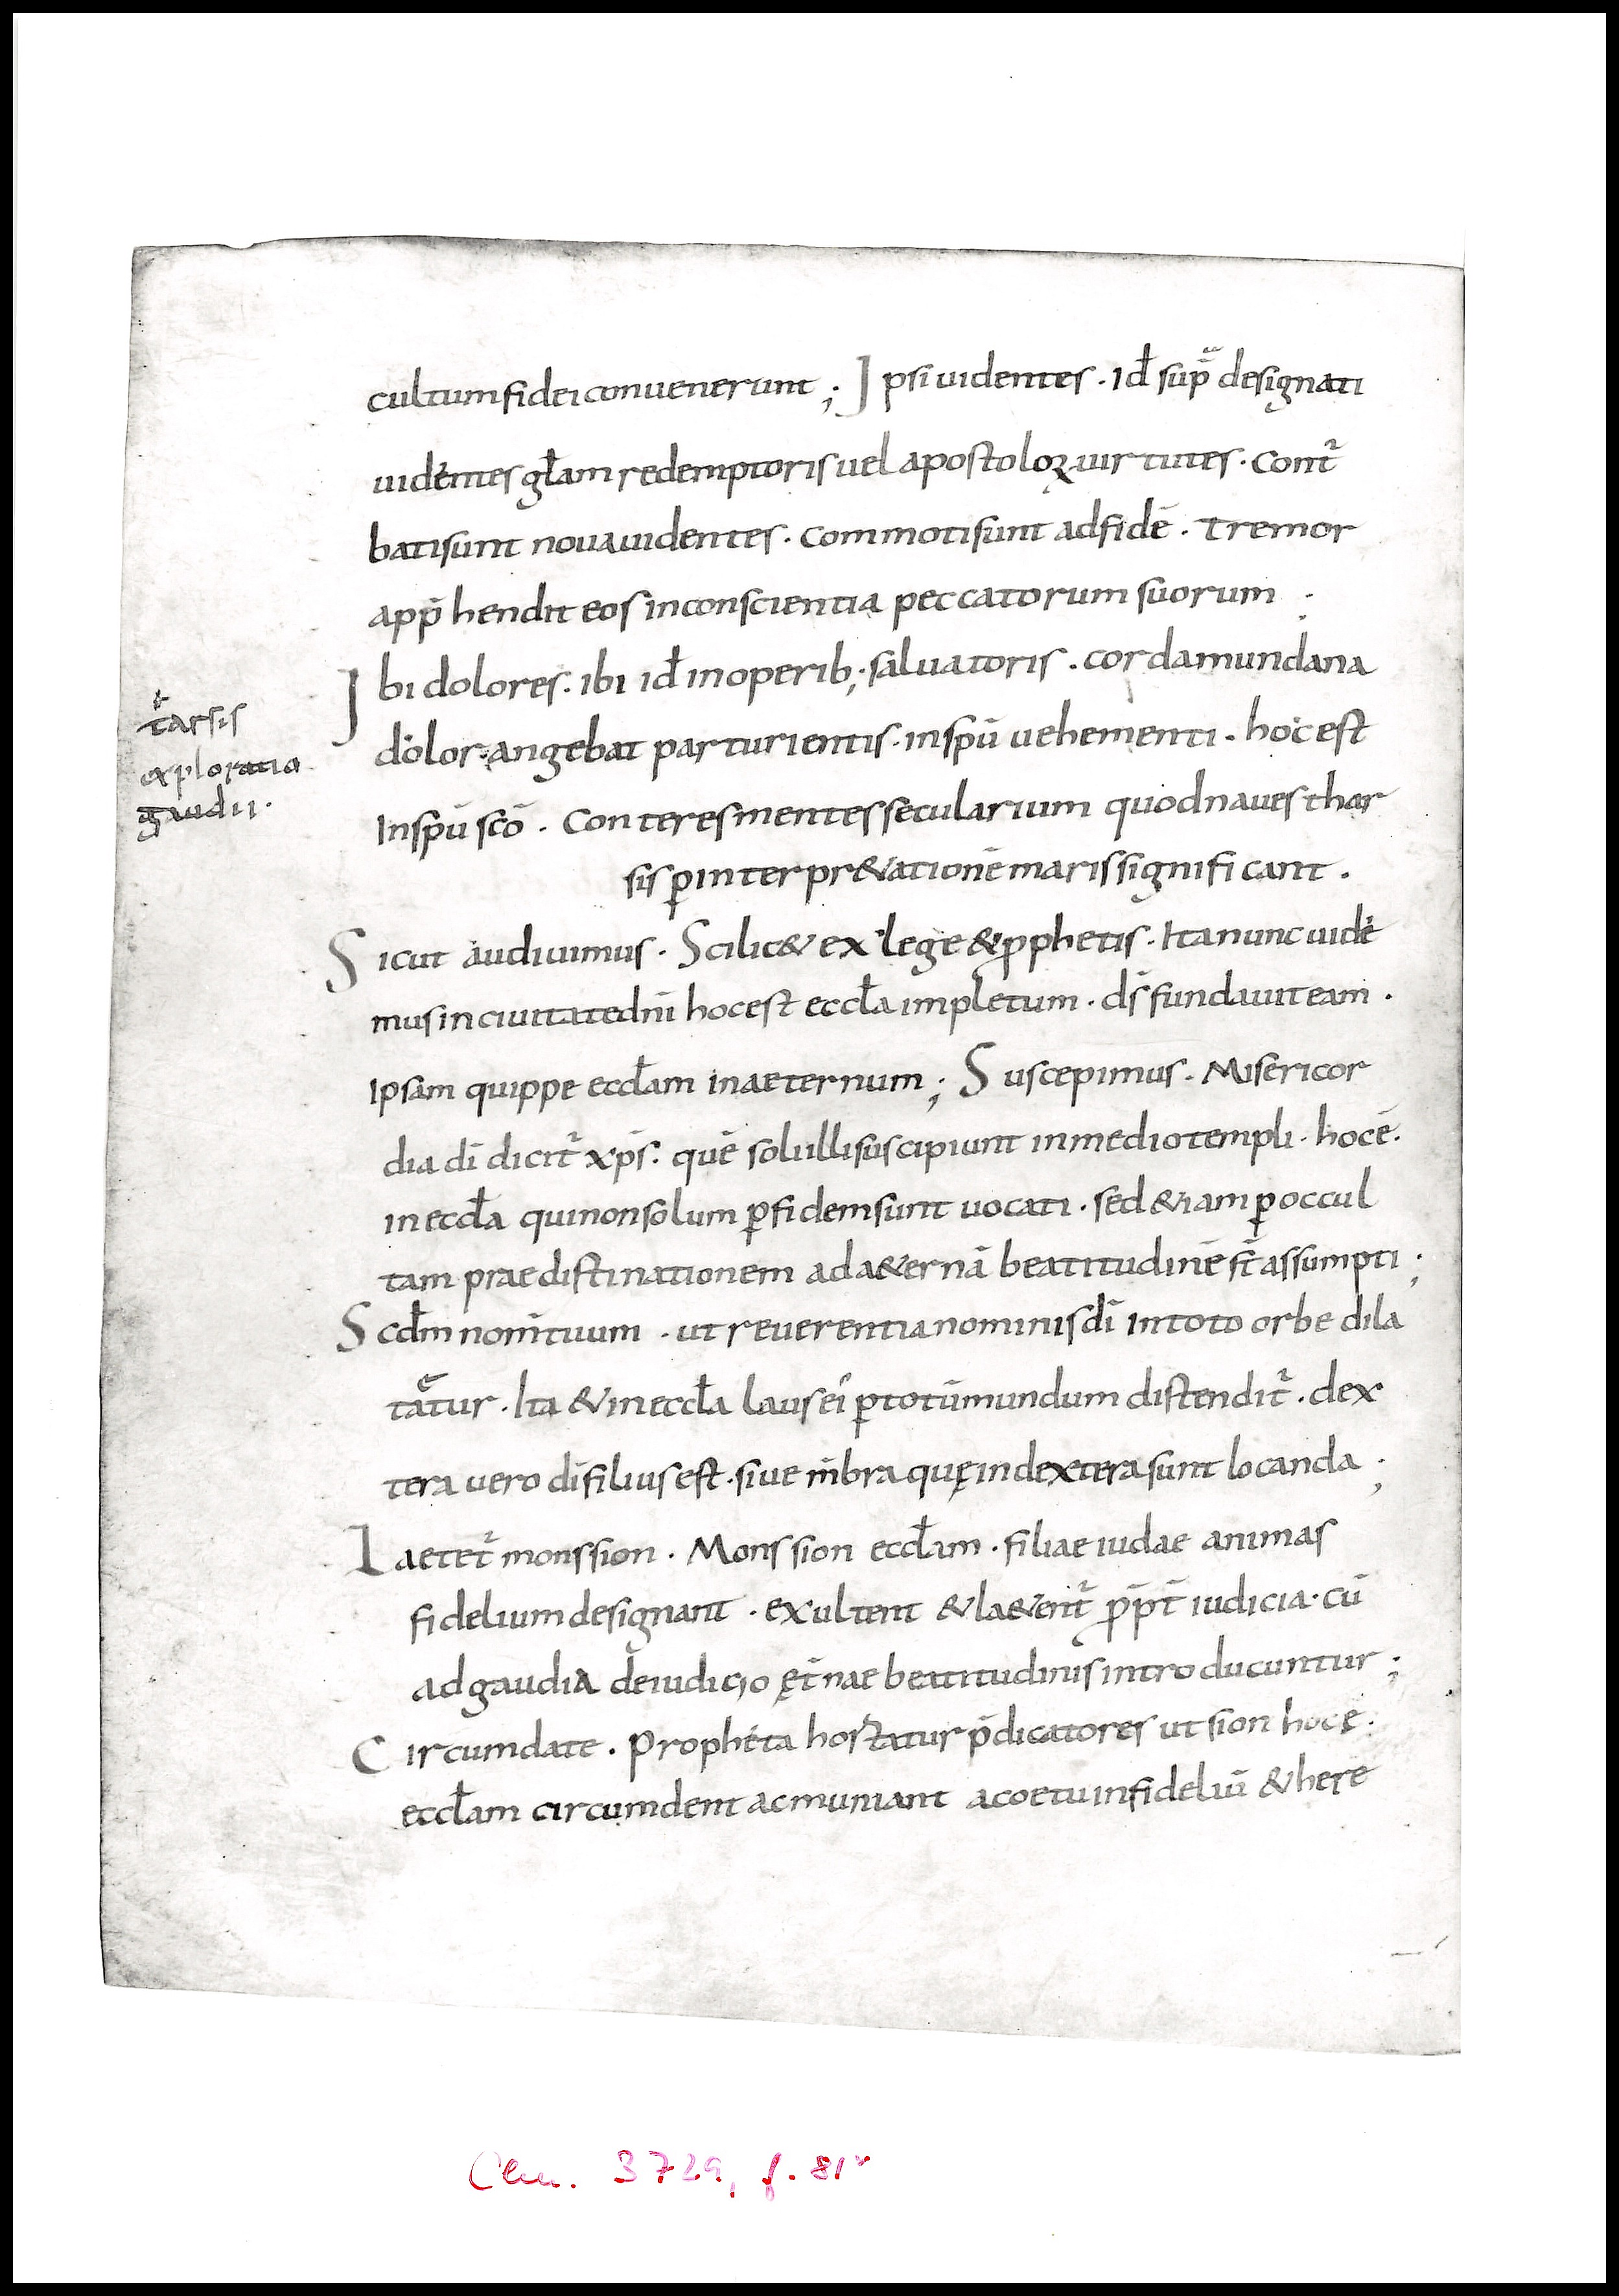 cultum fidei convenerunt; Ipsi videntes. id̄ sup̄ designati
videntes gl̄am redemptoris vel apostoloꝝ virtutes. Cont̄
bati sunt nova videntes. Commoti sunt ad fidē. Tremor
app̄hendit eos in conscientia peccatorum suorum.
Ibi dolores. ibi id̄ in operib; salvatoris. corda mundana
tarsis
dolor angebat parturientis. in spū vehementi. hoc est
exploratio
gaudii.
In spū scō. Conteres mentes secularium quod naves thar
sis ꝑ interpr&ationē maris significant.
Sicut audivimus. Scilic& ex lege & ꝓphetis. Ita nunc vidē
mus in civitate dn̄i hoc est eccl̄a impletum. ds̄ fundavit eam.
Ipsam quippe eccl̄am in aeternum; Suscepimus. Misericor
dia dī dicit̄ xp̄s. quē soli illi suscipiunt in medio templi. hoc ē.
in eccl̄a qui non solum ꝑ fidem sunt vocati. sed &iam ꝑ occul
tam praedistinationem ad a&ernā beatitudinē s̄t assumpti;
Scd̄m nom̄ tuum. ut reverentia nominis dī in toto orbe dila
tatur. Ita & in eccl̄a laus eī ꝑ totū mundum distendit̄. dex
tera vero dī filius est. sive m̄bra quę in dextera sunt locanda;
Laetet̄ mons sion. Mons sion eccl̄am. filiae iudae animas
fidelium designant. exultent & la&ent̄ ꝓp̄t iudicia. cū
ad gaudia de iudicio ęt̄nae beatitudinis introducuntur;
Circumdate. Propheta hortatur p̄dicatores ut sion hoc ē.
eccl̄am circumdent ac muniant a coetu infideliū & here
Clm. 3729, f. 81v